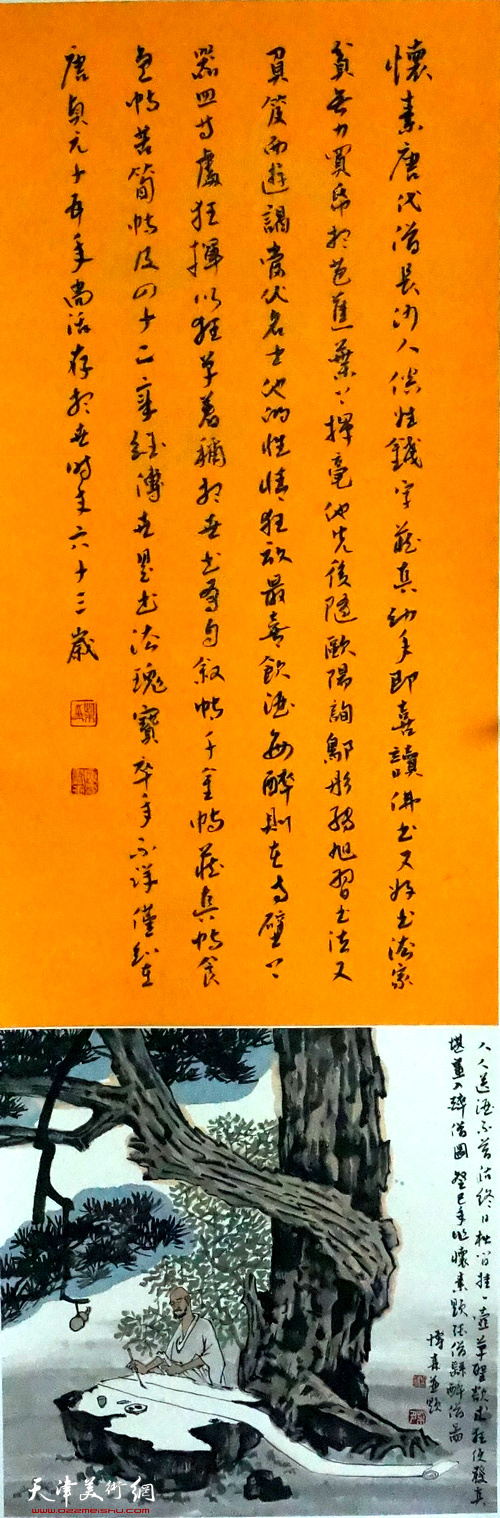 懷素唐代僧長沙人俗姓錢字藏真幼年即喜讀佛書又好書法家
貧無力買帋於芭蕉葉上揮毫他先後隨歐陽詢鄔彤張旭習書法又
負笈而遊謁當代名士他的性情狂放最喜飲酒每醉則在寺壁上
器皿等處狂揮以狂草著稱於世書有自敘帖千金帖藏真帖食
魚帖苦筍帖及四十二章經傳世是書法瑰寶卒年不詳僅知在
唐貞元十五年尚活存於世時年六十三歲
人人送酒不曾沽終日松間掛一壺草聖欲成狂便發真
堪畫入醉僧圖癸巳年作懷素題張僧繇醉僧圖
博真並題
天津美術網
www.022meishu.com